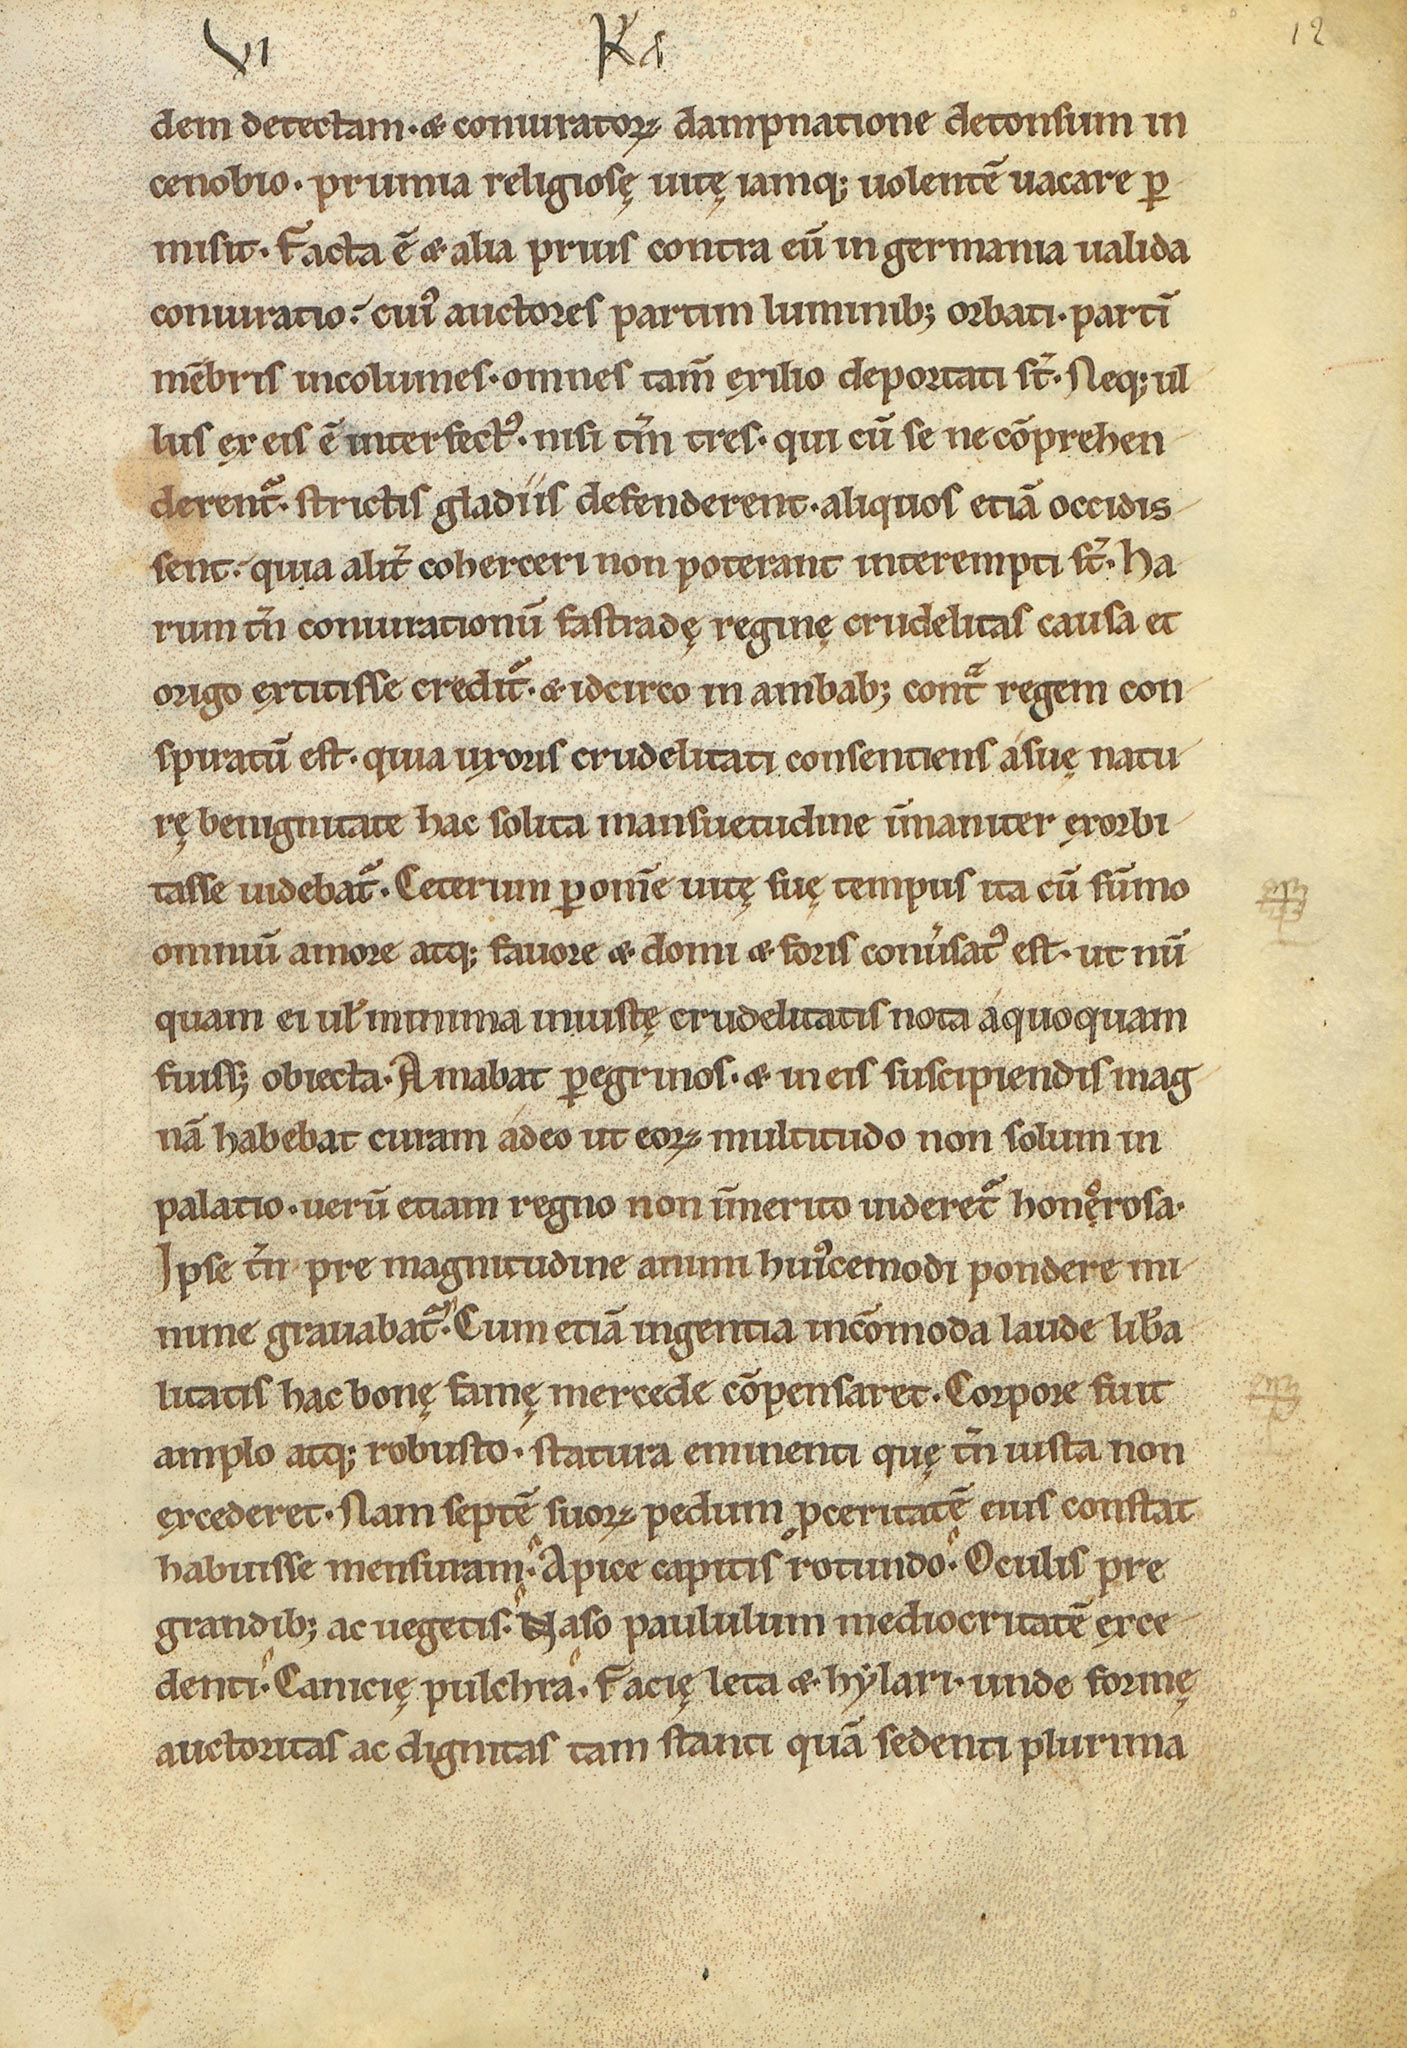 VI Ka 12
dem detectam · & coniuratoꝝ dampnatione detonsum in
cenobio · prumia religiosę uitę iamq; uolentē uacare ꝑ
misit · Facta ē & alia prius contra eū in germania ualida
coniuratio · cuiꝰ auctores partim luminib; orbati · partī
mēbris incolumes · omnes tam̄ exilio deportati st̄ · Neq; ul
lus ex eis ē interfectꝰ · nisi tm̄ tres · qui cū se ne cōprehen
derent᷑ · strictis gladiis defenderent · aliquos etiā occidis
sent · quia alit̄ coherceri non poterant interempti st̄ · Ha
rum tn̄ coniurationū fastradę reginę crudelitas causa et
origo extitisse credit᷑ · & idcirco in ambab; contᷓ regem con
spiratū est · quia uxoris crudelitati consentiens a suę natu
rę benignitate hac solita mansuetudine īmaniter exorbi
tasse uidebat᷑ · Ceterum ꝑ om̄e uitę suę tempus ita cū sūmo
omniū amore atq; fauore & domi & foris conu̓satꝰ est · ut nū
quam ei ul̓ minima iniustę crudelitatis nota a quoquam
fuiss; obiecta · Amabat ꝑegrinos · & in eis suscipiendis mag
nā habebat curam adeo ut eoꝝ multitudo non solum in
palatio · uerū etiam regno non īmerito uideret᷑ honęrosa ·
Ipse tn̄ pre magnitudine animi huiꝰcemodi pondere mi
nime grauabat᷑ · Cum etiā ingentia incōmoda laude lib̓a
litatis hac bonę famę mercede cōpensaret · Corpore fuit
amplo atq; robusto · statura eminenti quę tn̄ iusta non
excederet · Nam septē suoꝝ pedum ꝓceritatē eius constat
habuisse mensuram · Apice capitis rotundo · Oculis pre
grandib; ac uegetis · Naso paululum mediocritatē exce
denti · Canicię pulchra · Facię leta & hẏlari · unde formę
auctoritas ac dignitas tam stanti quā sedenti plurima